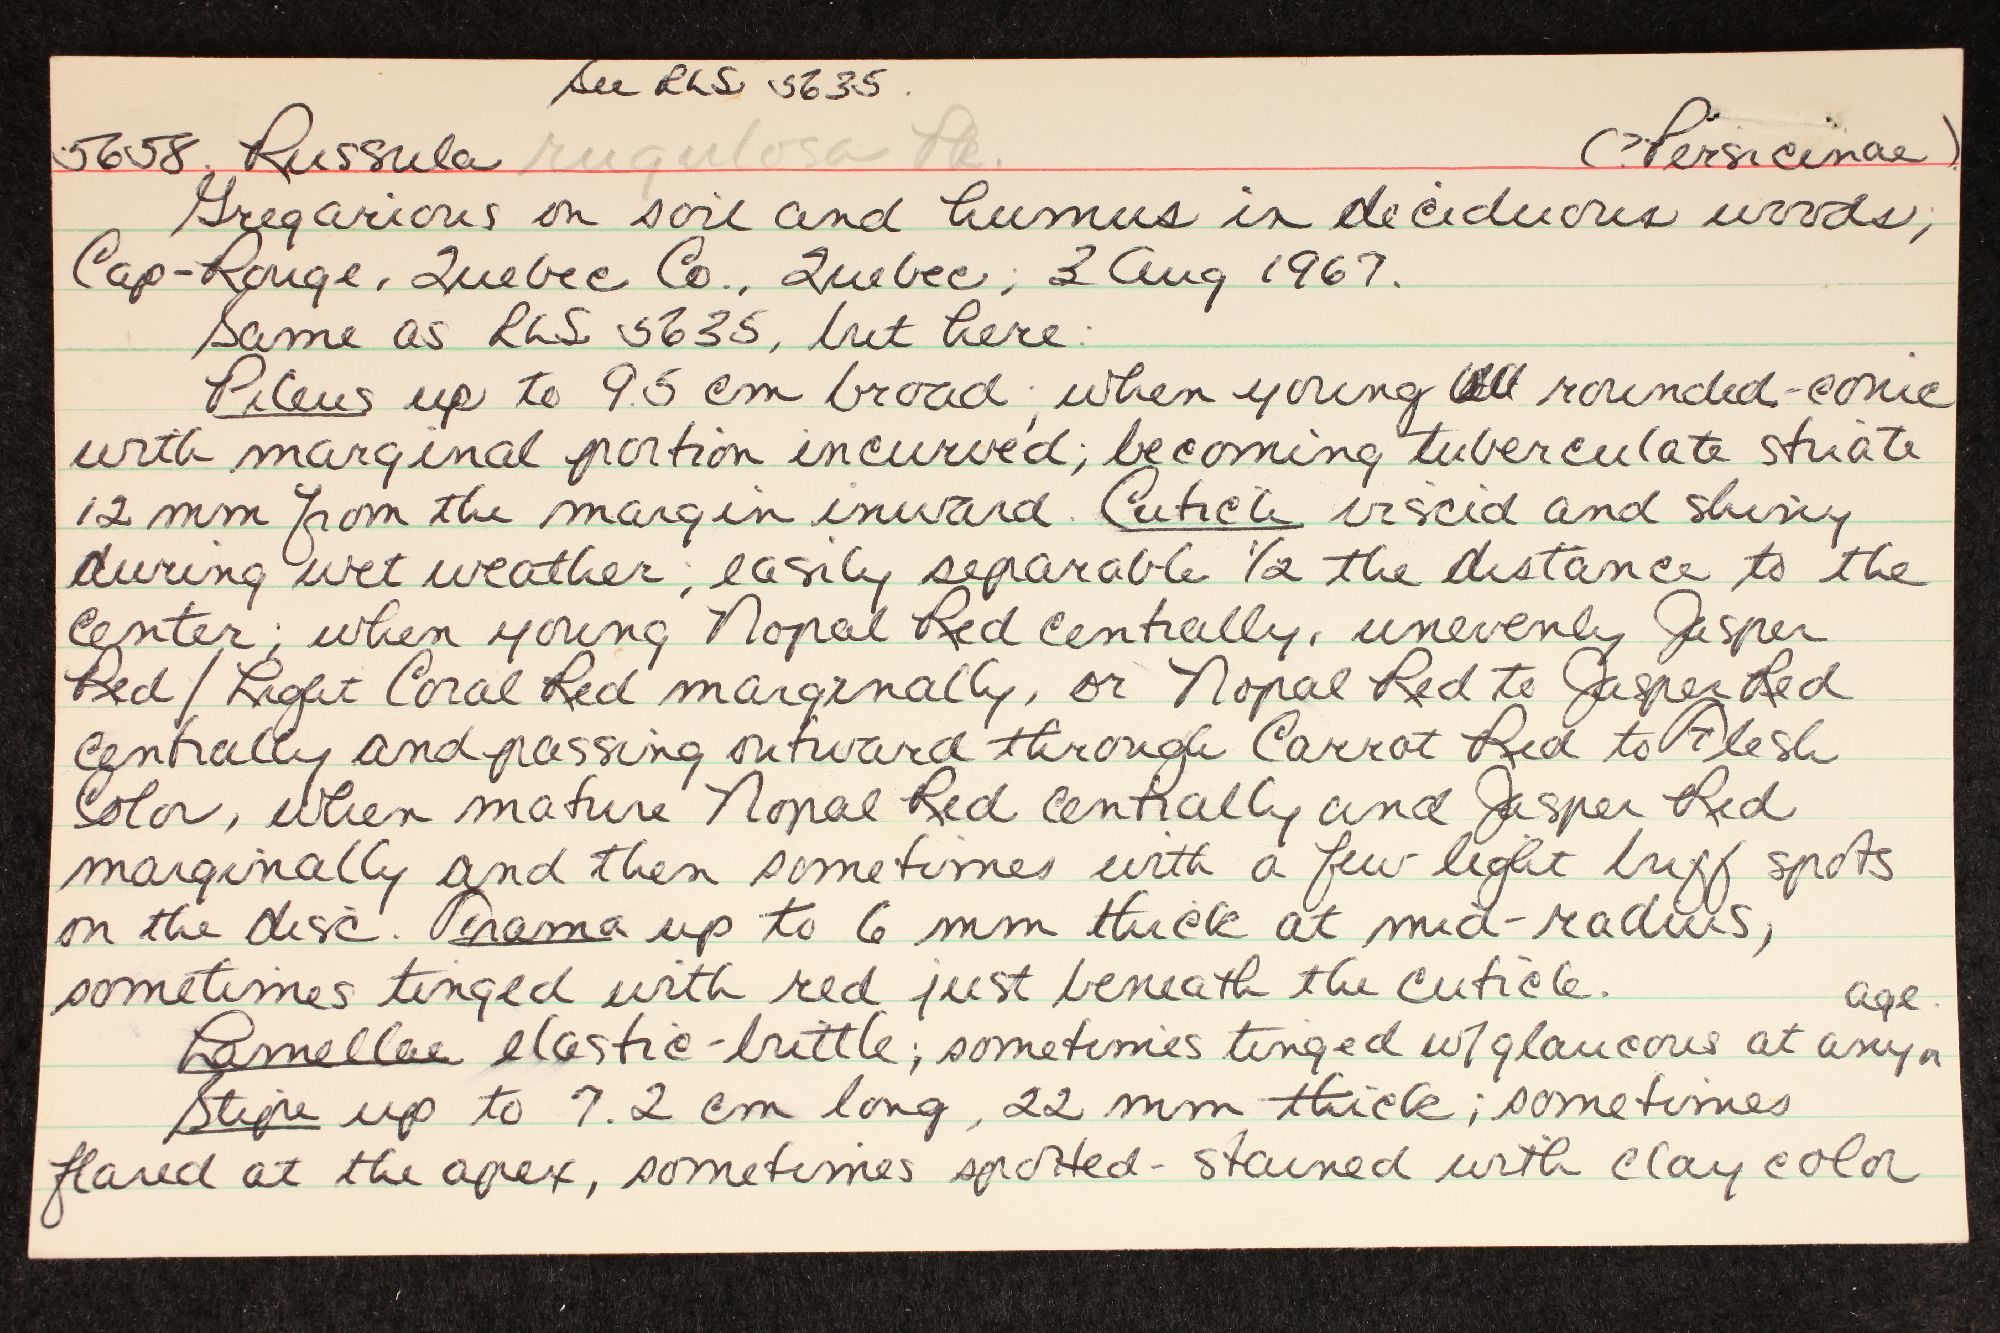 See RLS 5635.
5658. Russula rugulosa Pk. (?Persicinae)
Gregarious on soil and humus in deciduous woods;
Cap-Rouge, Quebec Co., Quebec; 3 Aug 1967.
Same as RLS 5635, but here:
Pileus up to 9.5 cm broad; when young rounded-conic
with marginal portion incurved; becoming tuberculate striate
12 mm from the margin inward. Cuticle viscid and shiny
during wet weather; easily separable 1/2 the distance to the
center; when young Nopal Red centrally, unevenly Jasper
Red / Light Coral Red marginally, or Nopal Red to Jasper Red
centrally and passing outward through Carrot Red to Flesh
Color, when mature Nopal Red centrally and Jasper Red
marginally and then sometimes with a few light buff spots
on the disc. Trama up to 6 mm thick at mid-radius,
sometimes tinged with red just beneath the cuticle.
Lamellae elastic-brittle; sometimes tinged w/glaucous at any age.
Stipe up to 7.2 cm long, 22 mm thick; sometimes
flared at the apex, sometimes spotted-stained with clay color